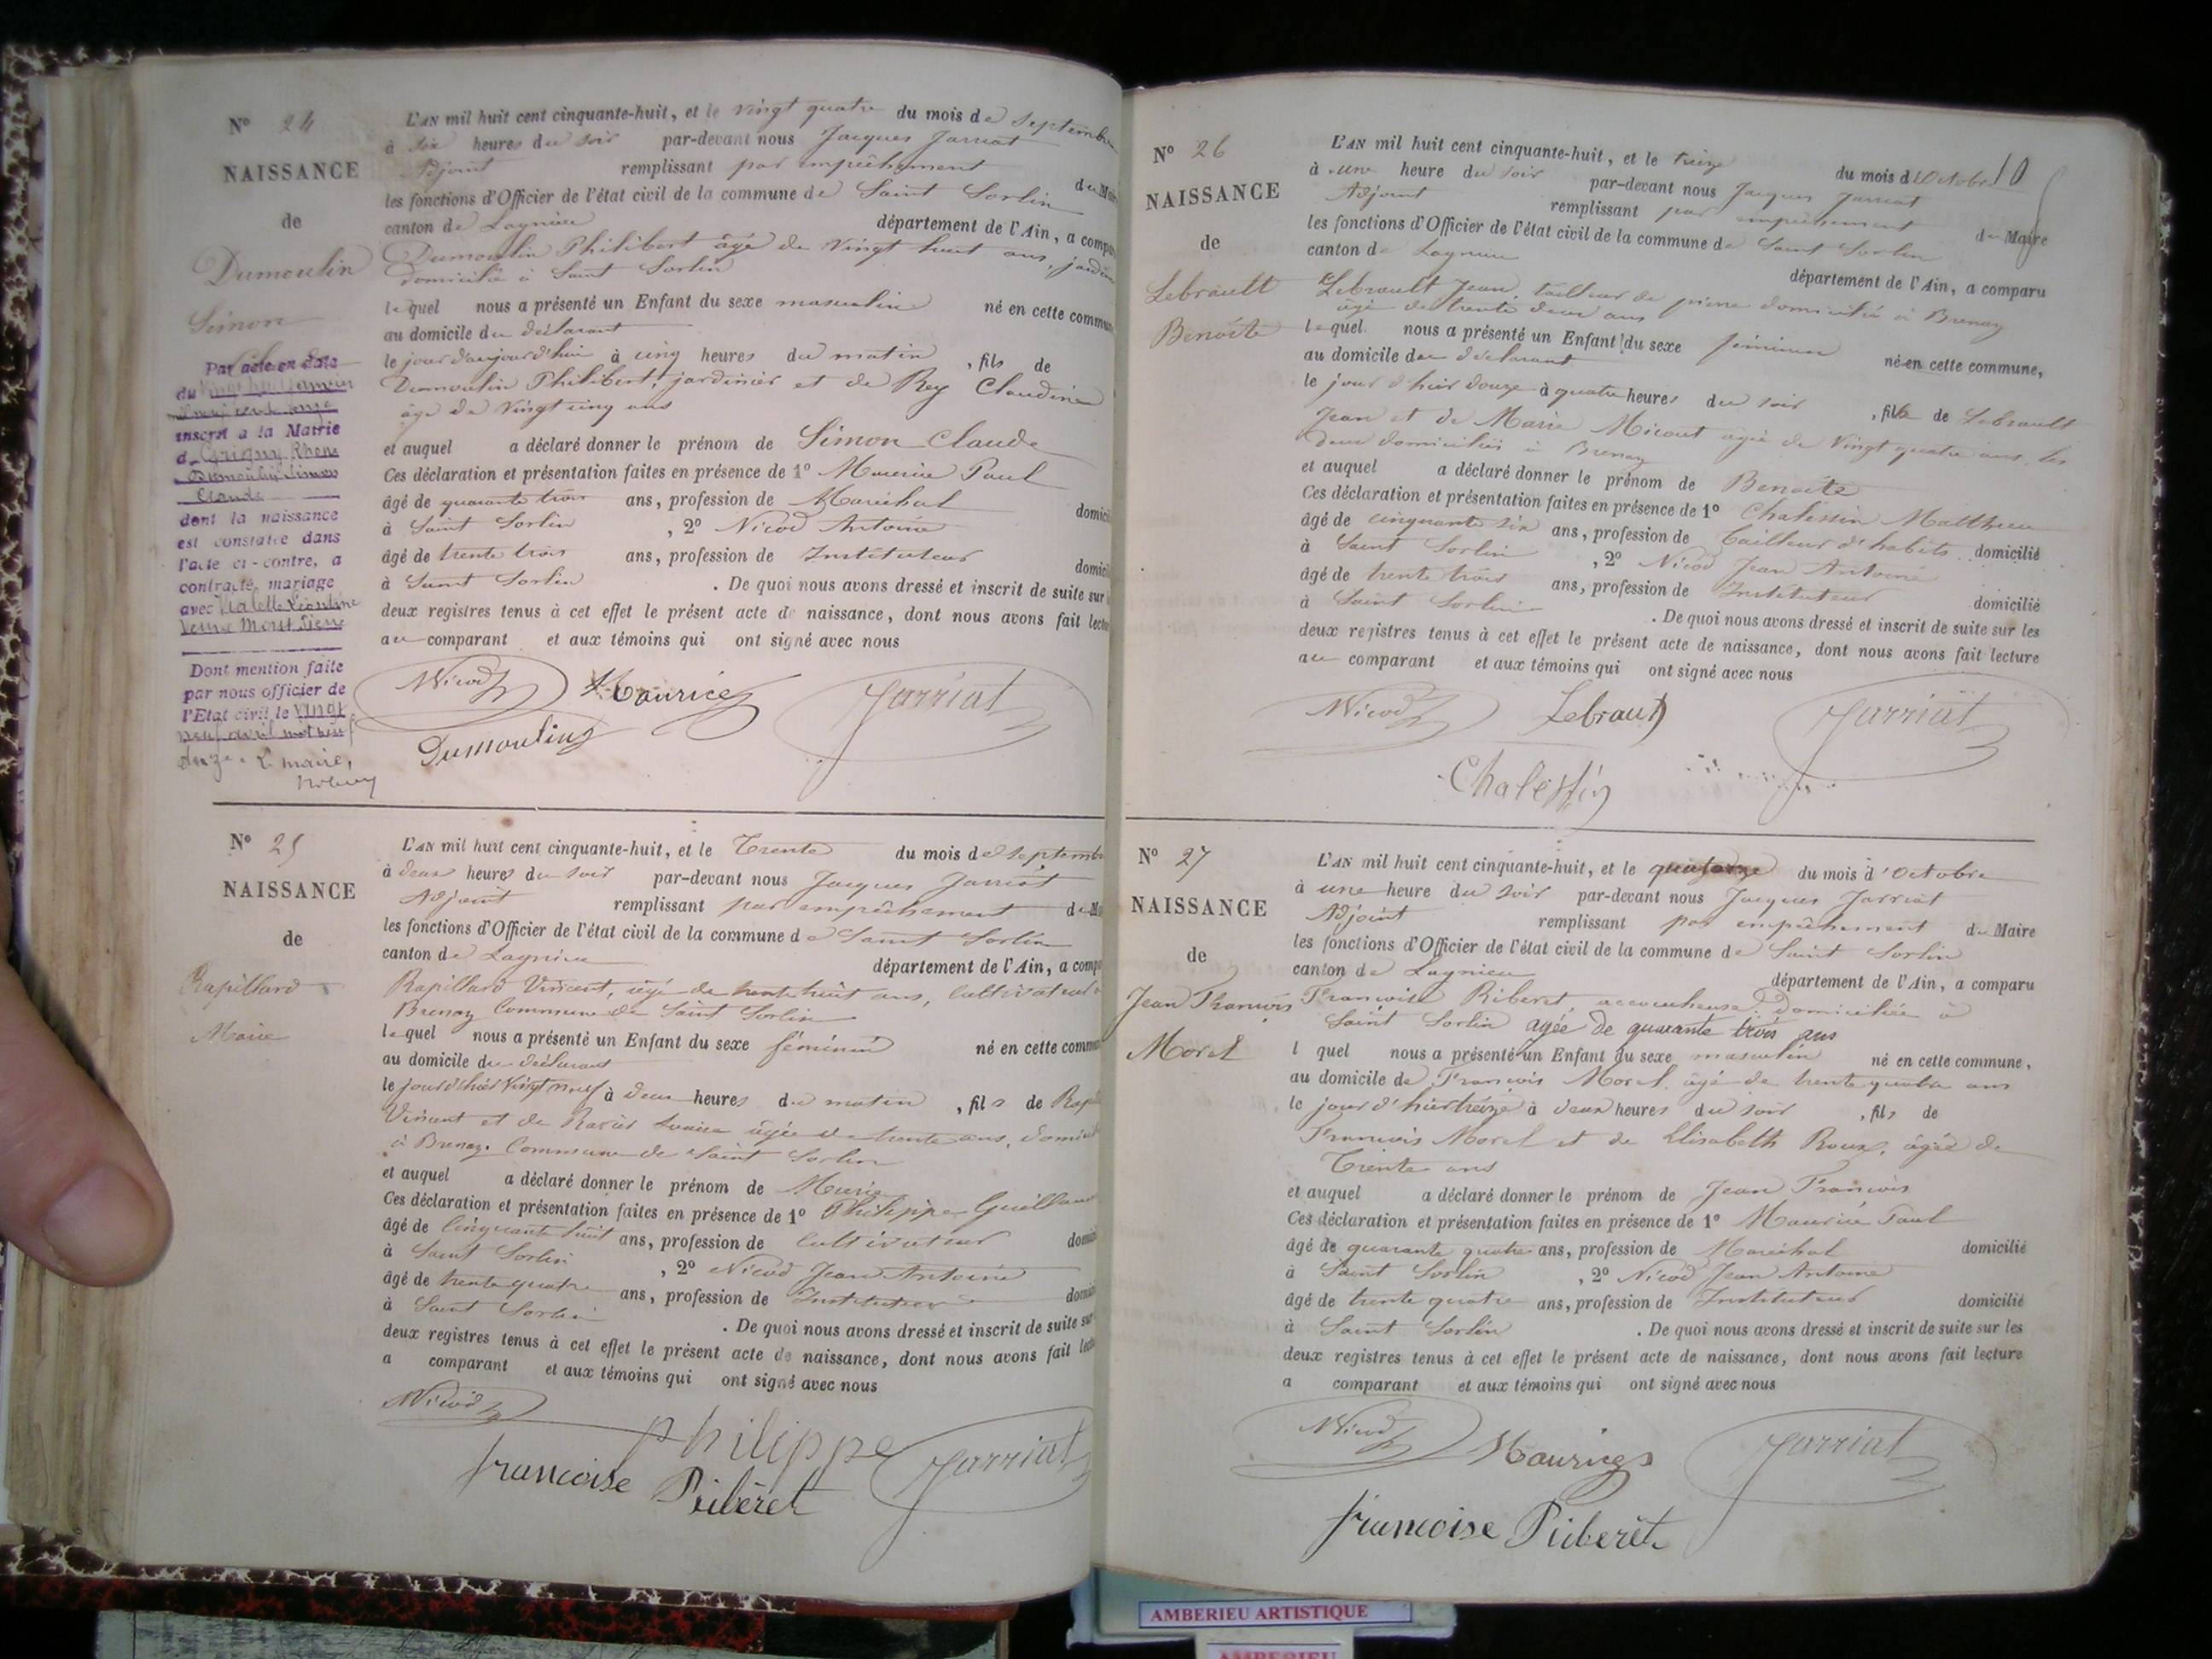 Nº 24
NAISSANCE
de
Dumoulin
Simon
Claude
Par acte en date
du
inscrit à la Mairie
d Grigny Rhône
Dumoulin Simon
Claude
dont la naissance
est constatée dans
l'acte ci-contre, a
contracté mariage
avec
Dont mention faite
par nous officier de
l'Etat civil le vingt
neuf avril mil neuf
douze. Le maire,
L'AN mil huit cent cinquante-huit, et le vingt quatre du mois de Septembre
à six heures du soir par-devant nous Jacques Jarriat
Adjoint remplissant par empêchement du Maire
les fonctions d'Officier de l'état civil de la commune de Saint Sorlin
canton de Lagnieu département de l'Ain, a comparu
Dumoulin Philibert âgé de vingt huit ans, jardin
domicilié à Saint Sorlin
lequel nous a présenté un Enfant du sexe masculin né en cette commune
au domicile du déclarant
le jour d'aujourd'hui à cinq heures du matin, fils de
Dumoulin Philibert, jardinier et de Rey Claudine
âgé de vingt cinq ans
et auquel a déclaré donner le prénom de Simon Claude
Ces déclaration et présentation faites en présence de 1º Maurice Paul
âgé de quarante trois ans, profession de Maréchal domici
à Saint Sorlin, 2º Nicod Antoine
âgé de trente trois ans, profession de Instituteur domici
à Saint Sorlin. De quoi nous avons dressé et inscrit de suite sur
deux registres tenus à cet effet le présent acte de naissance, dont nous avons fait lecture
au comparant et aux témoins qui ont signé avec nous
Nicod Maurice Jarriat
Dumoulin
Nº 25
NAISSANCE
de
Rapillard
Marie
L'AN mil huit cent cinquante-huit, et le Trente du mois de Septembre
à deux heures du soir par-devant nous Jacques Jarriat
Adjoint remplissant par empêchement du Ma
les fonctions d'Officier de l'état civil de la commune de Saint Sorlin
canton de Lagnieu département de l'Ain, a compa
Rapillard Vincent, âgé de trente huit ans, cultivateur à
Brenaz Commune de Saint Sorlin
lequel nous a présenté un Enfant du sexe féminin né en cette commu
au domicile du déclarant
le jour d'hier vingt neuf à deux heures du matin, fils de Rapil
Vincent et de âgée de trente ans, domici
à Brenaz Commune de Saint Sorlin
et auquel a déclaré donner le prénom de Marie
Ces déclaration et présentation faites en présence de 1º Philippe Guillaume
âgé de cinquante huit ans, profession de Cultivateur domici
à Saint Sorlin, 2º Nicod Jean Antoine
âgé de trente quatre ans, profession de Instituteur domici
à Saint Sorlin. De quoi nous avons dressé et inscrit de suite sur
deux registres tenus à cet effet le présent acte de naissance, dont nous avons fait lect
a comparant et aux témoins qui ont signé avec nous
Nicod Philippe Jarriat
francoise Piibéret
10
Nº 26
NAISSANCE
de
Lebrault
Benoite
L'AN mil huit cent cinquante-huit, et le treize du mois d'Octobre
à une heure du soir par-devant nous Jacques Jarriat
Adjoint remplissant par empêchement du Maire
les fonctions d'Officier de l'état civil de la commune de Saint Sorlin
canton de Lagnieu département de l'Ain, a comparu
Lebrault Jean, tailleur de pierre domicilié à Brenaz
âgé de trente deux ans
lequel nous a présenté un Enfant du sexe féminin né en cette commune,
au domicile du déclarant
le jour d'hier douze à quatre heures du soir, fille de Lebrault
Jean et de Marie Micout âgée de vingt quatre ans les
deux domiciliés à Brenaz
et auquel a déclaré donner le prénom de Benoite
Ces déclaration et présentation faites en présence de 1º Chalessin Matthieu
âgé de cinquante six ans, profession de tailleur d'habits domicilié
à Saint Sorlin, 2º Nicod Jean Antoine
âgé de trente trois ans, profession de Instituteur domicilié
à Saint Sorlin. De quoi nous avons dressé et inscrit de suite sur les
deux registres tenus à cet effet le présent acte de naissance, dont nous avons fait lecture
au comparant et aux témoins qui ont signé avec nous
Nicod Lebraut Jarriat
Chalessin
Nº 27
NAISSANCE
de
Jean François
Morel
L'AN mil huit cent cinquante-huit, et le quatorze du mois d'Octobre
à une heure du soir par-devant nous Jacques Jarriat
Adjoint remplissant par empêchement du Maire
les fonctions d'Officier de l'état civil de la commune de Saint Sorlin
canton de Lagnieu département de l'Ain, a comparu
Francoise Riberet, accoucheuse, domiciliée à
Saint Sorlin agée de quarante trois ans
l quel nous a présenté un Enfant du sexe masculin né en cette commune,
au domicile de François Morel âgé de trente quatre ans
le jour d'hier treize à deux heures du soir, fils de
François Morel et de Elisabeth Roux, âgée de
Trente ans
et auquel a déclaré donner le prénom de Jean François
Ces déclaration et présentation faites en présence de 1º Maurice Paul
âgé de quarante quatre ans, profession de Maréchal domicilié
à Saint Sorlin, 2º Nicod Jean Antoine
âgé de trente quatre ans, profession de Instituteur domicilié
à Saint Sorlin. De quoi nous avons dressé et inscrit de suite sur les
deux registres tenus à cet effet le présent acte de naissance, dont nous avons fait lecture
a comparant et aux témoins qui ont signé avec nous
Nicod Maurice Jarriat
francoise Piiberet
AMBERIEU ARTISTIQUE
AMBERIEU